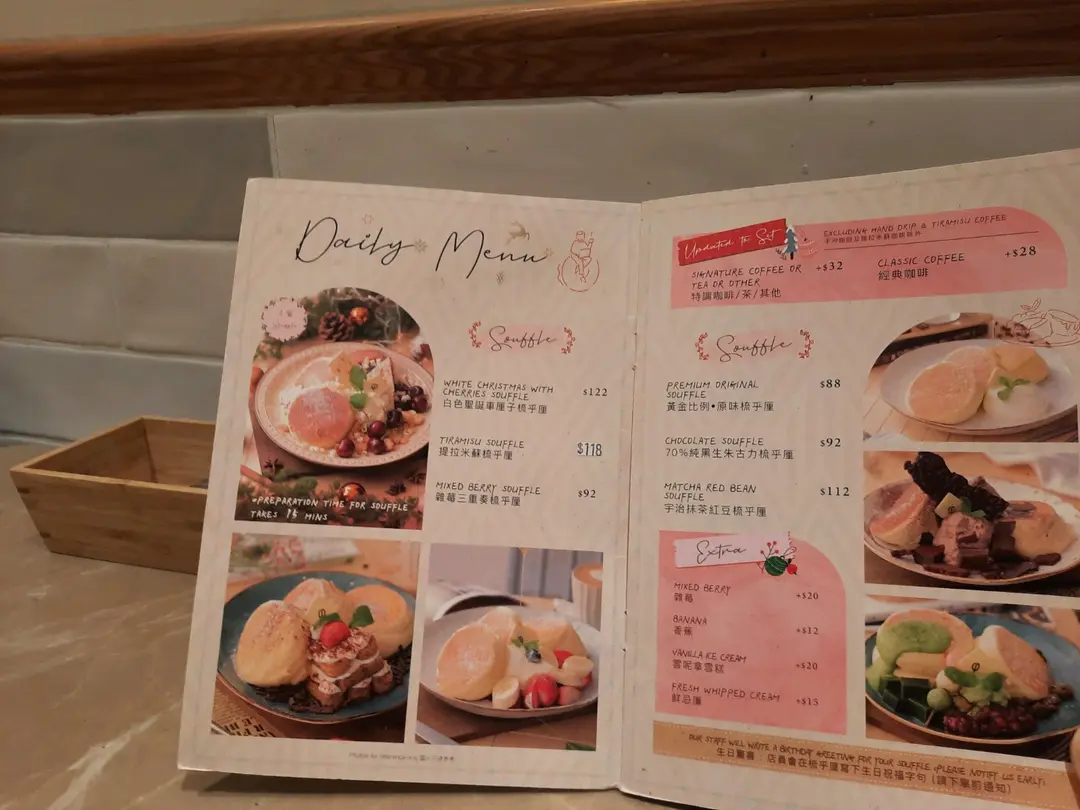 Daily Menu
Souffle
WHITE CHRISTMAS WITH
CHERRIES SOUFFLE
$122
白色聖誕車厘子梳乎厘
TIRAMISU SOUFFLE
$118
提拉米蘇梳乎厘
MIXED BERRY SOUFFLE
$92
雜莓三重奏梳乎厘
*PREPARATION TIME FOR SOUFFLE
TAKES 15 MINS
Updated to Set
EXCLUDING HAND DRIP & TIRAMISU COFFEE
手沖咖啡及提拉米蘇咖啡除外
SIGNATURE COFFEE OR
TEA OR OTHER
+$32
特調咖啡/茶/其他
CLASSIC COFFEE
+$28
經典咖啡
Souffle
PREMIUM ORIGINAL
SOUFFLE
$88
黃金比例•原味梳乎厘
CHOCOLATE SOUFFLE
$92
70%純黑生朱古力梳乎厘
MATCHA RED BEAN
SOUFFLE
$112
宇治抹茶紅豆梳乎厘
Extra
MIXED BERRY
+$20
雜莓
BANANA
+$12
香蕉
VANILLA ICE CREAM
+$20
雲呢拿雪糕
FRESH WHIPPED CREAM
+$15
鮮忌廉
OUR STAFF WILL WRITE A BIRTHDAY GREETING FOR YOUR SOUFFLE (PLEASE NOTIFY US EARLY)
生日驚喜：店員會在梳乎厘寫下生日祝福字句 (請下單前通知)